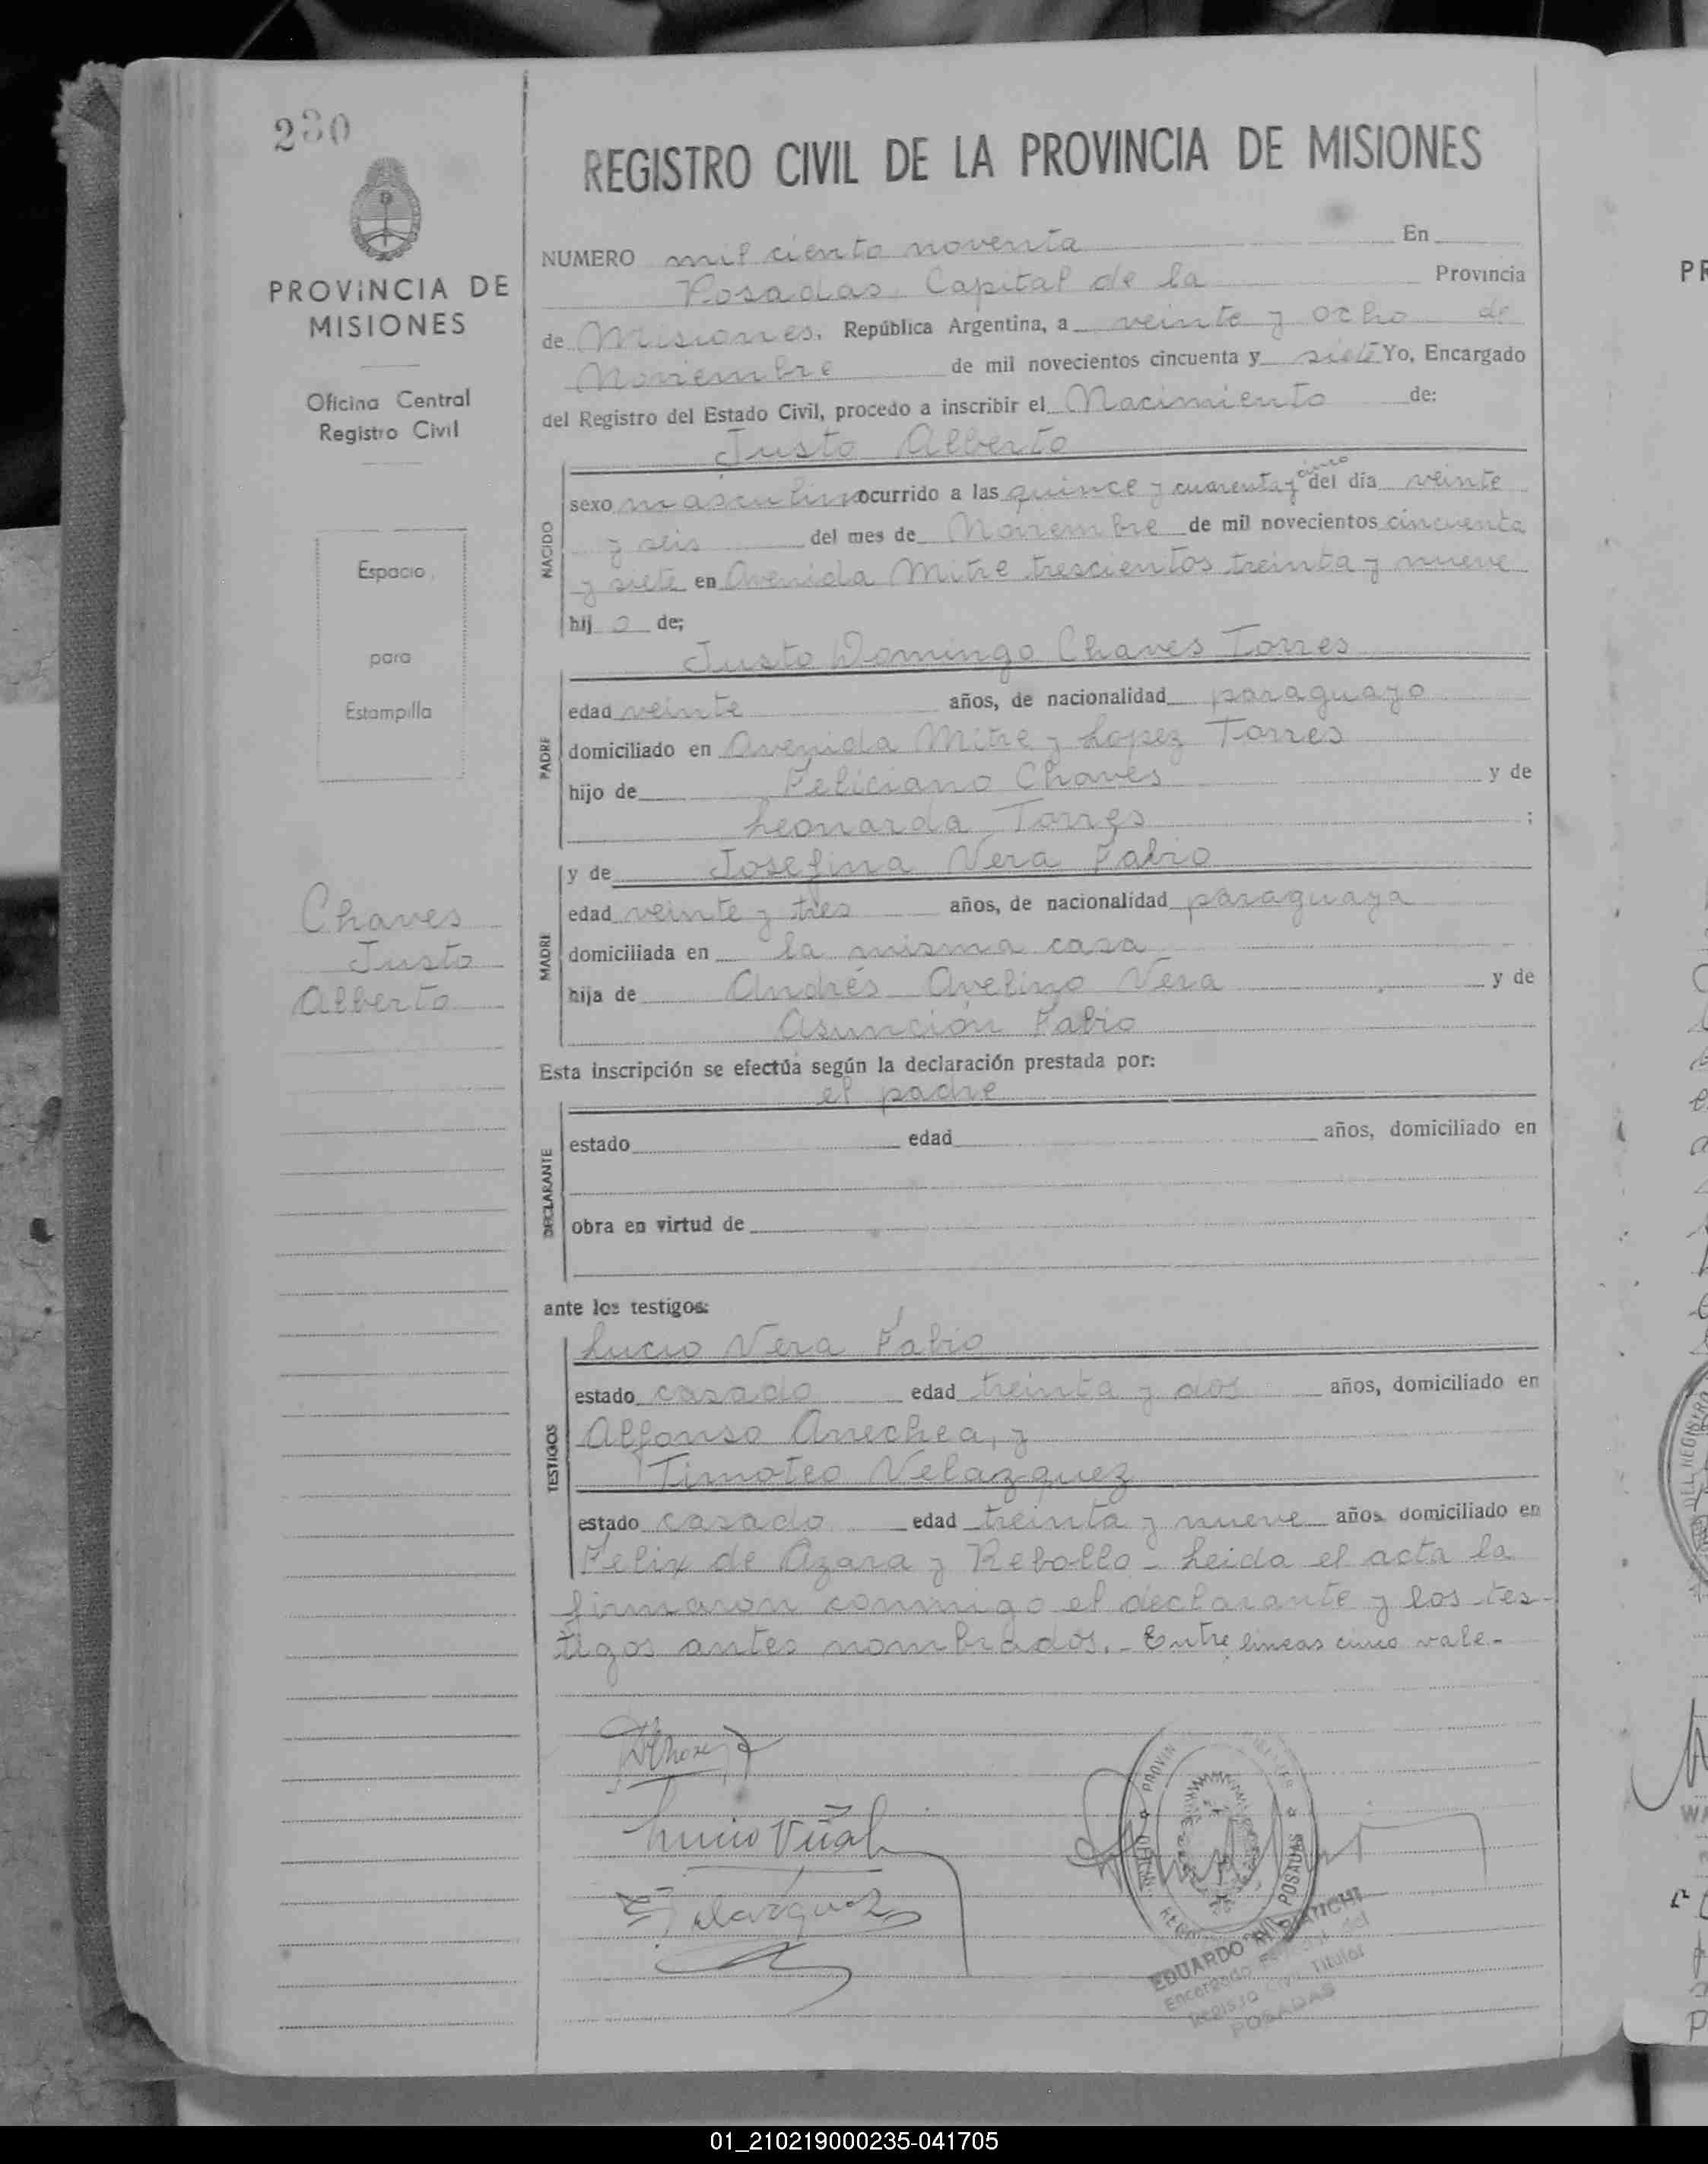 230
PROVINCIA DE
MISIONES
Oficina Central
Registro Civil
Espacio
para
Estampilla
Chaves
Justo
Alberto
REGISTRO CIVIL DE LA PROVINCIA DE MISIONES
NUMERO mil ciento noventa En
Posadas, Capital de la Provincia
de Misiones, República Argentina, a veinte y ocho de
Noviembre de mil novecientos cincuenta y siete Yo, Encargado
del Registro del Estado Civil, procedo a inscribir el Nacimiento de:
Justo Alberto
NACIDO
sexo masculino ocurrido a las quince y cuarenta y cinco del día veinte
y seis del mes de Noviembre de mil novecientos cincuenta
y siete en Avenida Mitre trescientos treinta y nueve
hij o de;
Justo Domingo Chaves Torres
PADRE
edad veinte años, de nacionalidad paraguayo
domiciliado en Avenida Mitre y Lopez Torres
hijo de Feliciano Chaves y de
Leonarda Torres ;
y de Josefina Vera Fabio
MADRE
edad veinte y tres años, de nacionalidad paraguaya
domiciliada en la misma casa
hija de Andrés Avelino Vera y de
Asunción Fabio
Esta inscripción se efectúa según la declaración prestada por:
el padre
DECLARANTE
estado edad años, domiciliado en
obra en virtud de
ante los testigos:
Lucio Vera Fabio
TESTIGOS
estado casado edad treinta y dos años, domiciliado en
Alfonso Arrechea, y
Timoteo Velazquez
estado casado edad treinta y nueve años domiciliado en
Felix de Azara y Rebollo - Leida el acta la
firmaron conmigo el declarante y los tes-
tigos antes nombrados. - Entre lineas cinco vale -
Lucio
POSADAS
EDUARDO M. BIANCHI
Encargado del
Registro Civil Titular
POSADAS
01_210219000235-041705